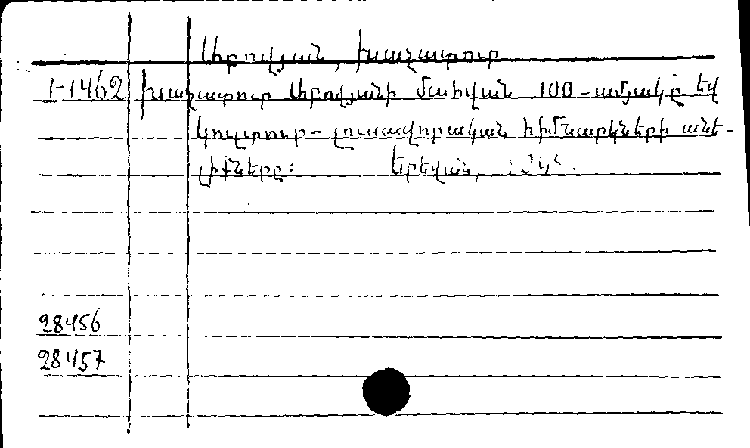 Աբովյան, Խաչատուր
I-1462 Խաչատուր Աբովյանի մահվան 100-ամյակը եվ
կուլտուր-լուսավորական հիմնարկների անե-
լիքները։ Երեվան,
28456
28457